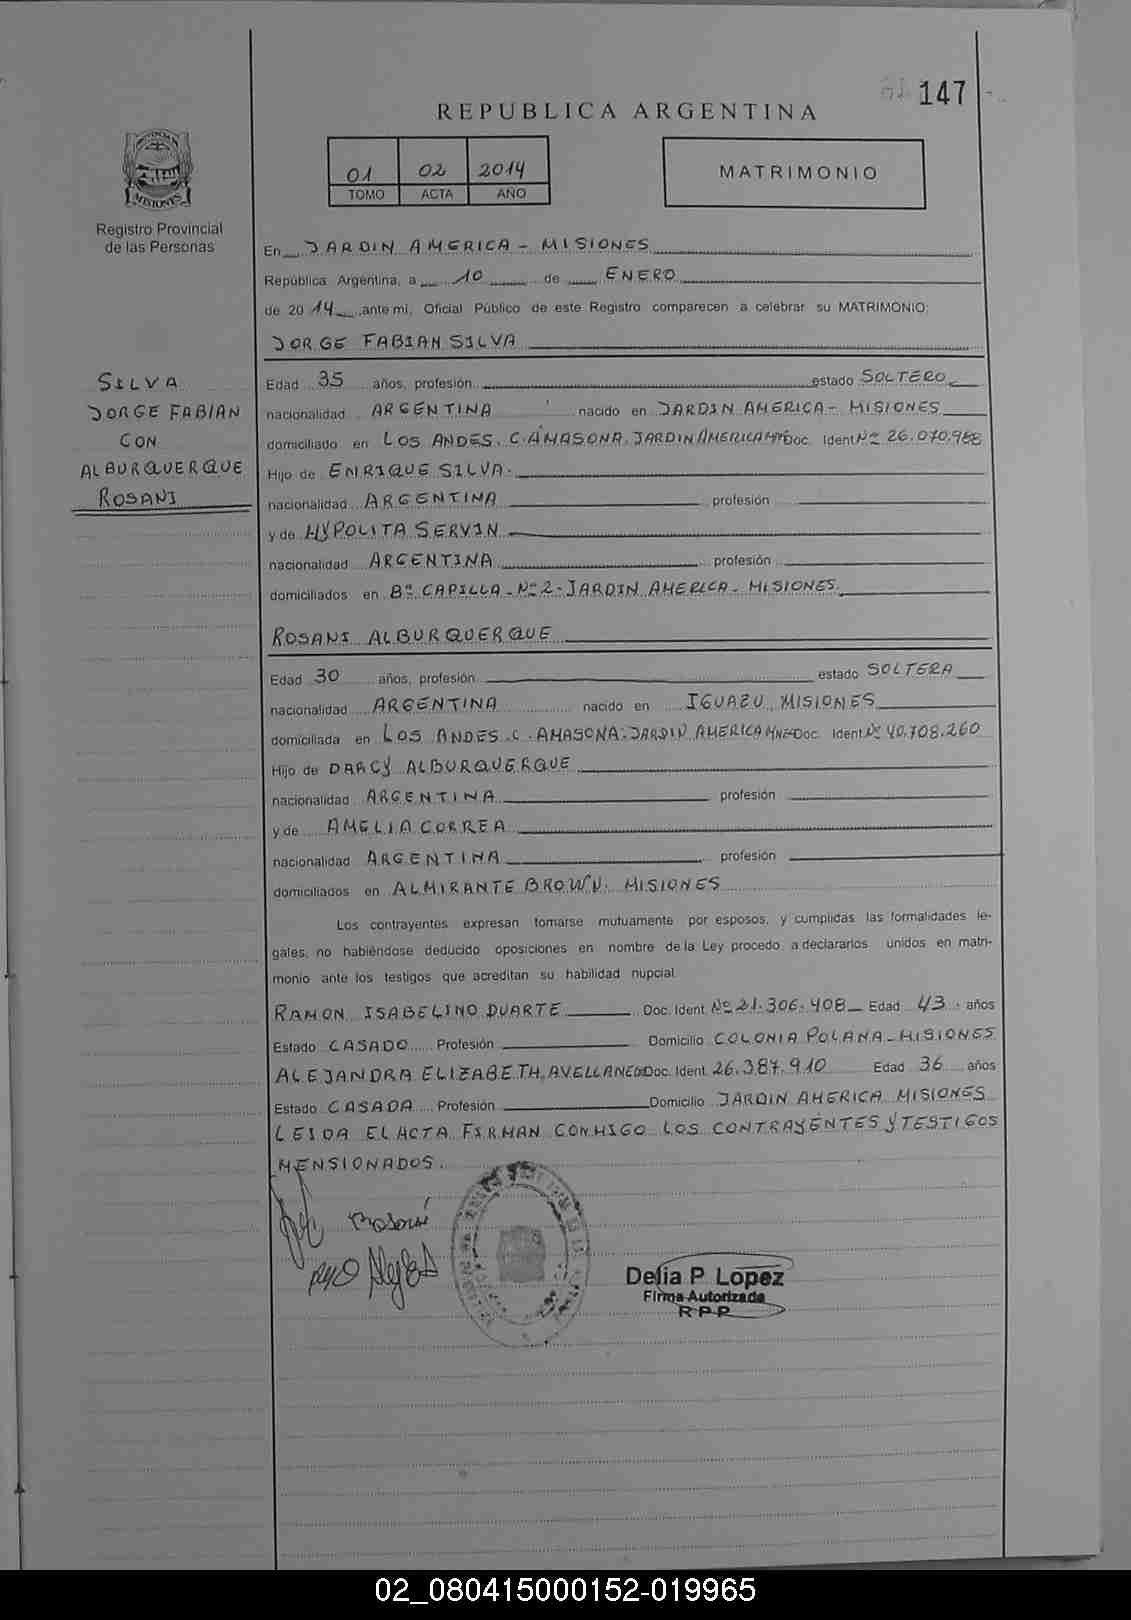 147
REPUBLICA ARGENTINA
01 02 2014
TOMO ACTA AÑO
MATRIMONIO
MISIONES
Registro Provincial
de las Personas
En JARDIN AMERICA - MISIONES
República Argentina, a 10 de ENERO
de 2014, ante mi, Oficial Público de este Registro comparecen a celebrar su MATRIMONIO:
JORGE FABIAN SILVA
SILVA
JORGE FABIAN
CON
ALBURQUERQUE
ROSANI
Edad 35 años, profesión estado SOLTERO
nacionalidad ARGENTINA nacido en JARDIN AMERICA - MISIONES
domiciliado en LOS ANDES. C. AMASONA. JARDIN AMERICA Doc. Ident Nº 26.070.988
Hijo de ENRIQUE SILVA.
nacionalidad ARGENTINA profesión
y de HYPOLITA SERVIN
nacionalidad ARGENTINA profesión
domiciliados en Bº CAPILLA - Nº 2 - JARDIN AMERICA - MISIONES
ROSANI ALBURQUERQUE
Edad 30 años, profesión estado SOLTERA
nacionalidad ARGENTINA nacido en IGUAZU MISIONES
domiciliada en LOS ANDES. C. AMASONA. JARDIN AMERICA Doc. Ident Nº 40.708.260
Hijo de DARCY ALBURQUERQUE
nacionalidad ARGENTINA profesión
y de AMELIA CORREA
nacionalidad ARGENTINA profesión
domiciliados en ALMIRANTE BROWN. MISIONES
Los contrayentes expresan tomarse mutuamente por esposos, y cumplidas las formalidades le-
gales, no habiéndose deducido oposiciones en nombre de la Ley procedo a declararlos unidos en matri-
monio ante los testigos que acreditan su habilidad nupcial
RAMON ISABELINO DUARTE Doc. Ident Nº 21.306.408 Edad 43 años
Estado CASADO Profesión Domicilio COLONIA POLANA - MISIONES
ALEJANDRA ELIZABETH AVELLANEDA Doc. Ident. 26.387.910 Edad 36 años
Estado CASADA Profesión Domicilio JARDIN AMERICA MISIONES
LEIDA EL ACTA FIRMAN CONMIGO LOS CONTRAYENTES Y TESTIGOS
MENSIONADOS.
Rosani
Delia P Lopez
Firma Autorizada
R P P
02_080415000152-019965